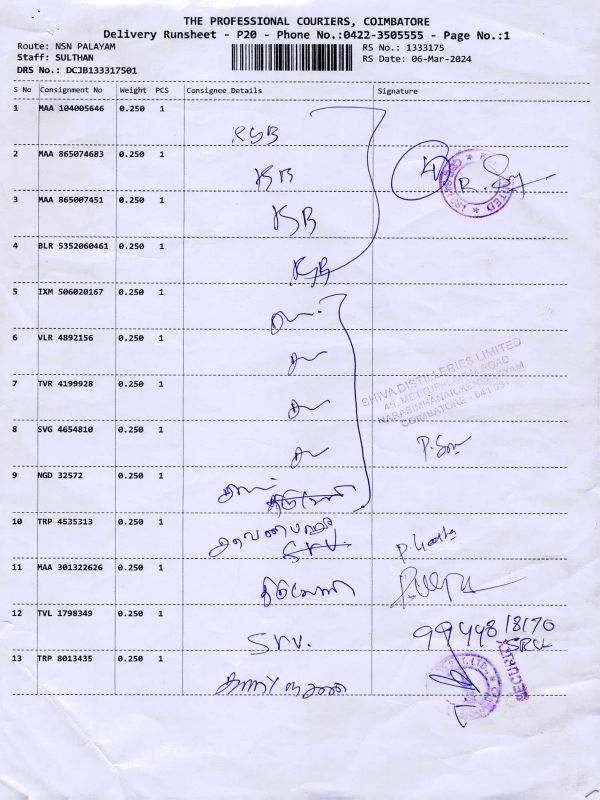 THE PROFESSIONAL COURIERS, COIMBATORE
Delivery Runsheet - P20 - Phone No.:0422-3505555 - Page No.:1
Route: NSN PALAYAM
Staff: SULTHAN
DRS No.: DCJB133317501
RS No.: 1333175
RS Date: 06-Mar-2024
S No Consignment No Weight PCS Consignee Details Signature
1 MAA 104005646 0.250 1
2 MAA 865074683 0.250 1
KB
3 MAA 865007451 0.250 1
KB
4 BLR 5352060461 0.250 1
KB
5 IXM 506020167 0.250 1
6 VLR 4892156 0.250 1
7 TVR 4199928 0.250 1
SHIVA DISTILLERIES LIMITED
45, METTUPALAYAM ROAD
NARASIMHANAICKENPALAYAM
COIMBATORE - 641 031
8 SVG 4654810 0.250 1
9 NGD 32572 0.250 1
10 TRP 4535313 0.250 1
Srv.
11 MAA 301322626 0.250 1
12 TVL 1798349 0.250 1
Srv.
99448 18170
SECURITY
13 TRP 8013435 0.250 1